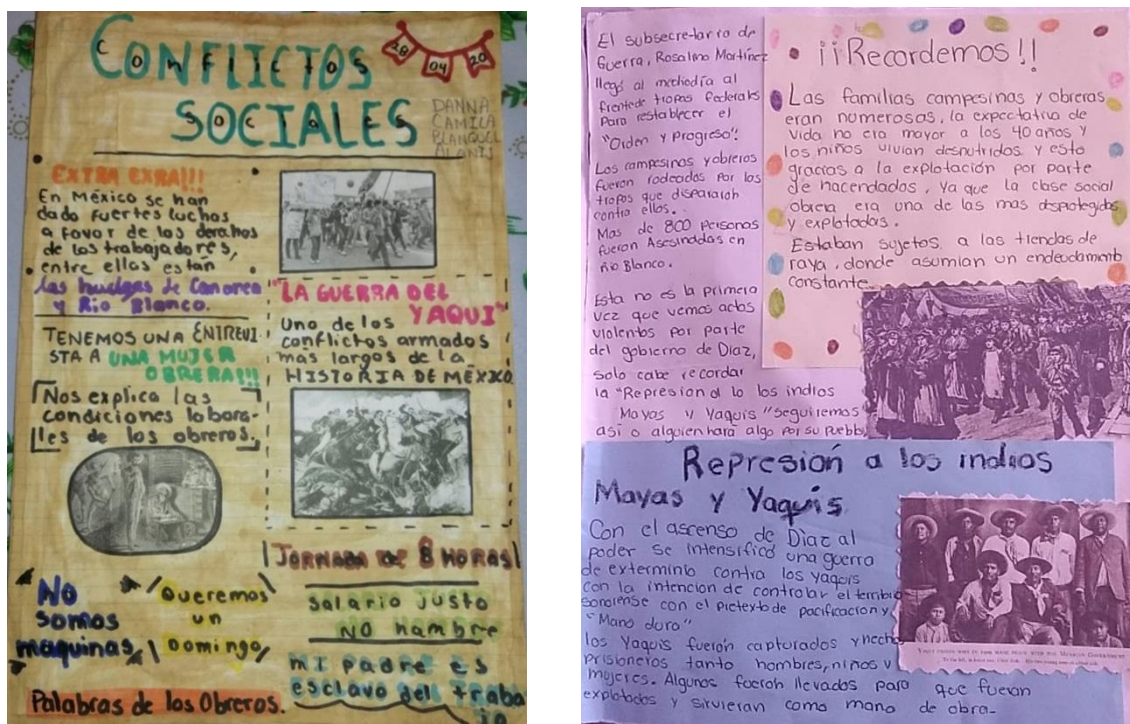 CONFLICTOS
SOCIALES
28
04
20
DANNA
CAMILA
BLANQUEL
ALANIS
EXTRA EXRA!!!
En México se han
dado fuertes luchas
a favor de los derahos
de los trabajadores,
entre ellos están
las huelgas de Cananea
y Rio Blanco.
TENEMOS UNA ENTREVI
STA A UNA MUJER
OBRERA!!!
Nos explica las
condiciones labora-
les de los obreros.
"LA GUERRA DEL
YAQUI"
Uno de los
conflictos armados
más largos de la
HISTORIA DE MÉXICO
JORNADA DE 8 HORAS
No
somos
maquinas
Queremos
un
Domingo
salario justo
NO hambre
mi padre es
esclavo del traba
jo
Palabras de los Obreros.
El subsecretario de
Guerra, Rosalino Martínez
llegó al mediodía al
frentede tropas federales
Para restablecer el
"Orden y Progreso"!
Los campesinos yobreros
fueron rodeados por las
tropas que dispararon
contra ellos.
Mas de 800 personas
fueron Asesinadas en
Rio Blanco.
Esta no es la primera
vez que vemos actos
violentos por parte
del gobierno de Diaz,
solo cabe recordar
la "Represion a lo los indios
Mayas y Yaquis" seguiremos
así o alguien hará algo por su pueblo
¡¡Recordemos!!
Las familias campesinas y obreras
eran numerosas, la expectativa de
vida no era mayor a los 40 años y
los niños vivian desnutridos y esto
gracias a la explotación por parte
de hacendados, ya que la clase social
obrera era una de las mas desprotegidas
y explotadas.
Estaban sujetos a las tiendas de
raya, donde asumian un endeudamiento
constante.
Represión a los indios
Mayas y Yaquis
Con el ascenso de Diaz al
poder se intensificó una guerra
de exterminio contra los yaquis
con la intencion de controlar el territorio
sonorense con el pretexto de pacificacion y
"Mano dura"
los Yaquis fueron capturados y hechos
prisioneros tanto hombres, niños y
mujeres. Algunos fueron llevados para que fueran
explotados y sirvieran como mano de obra-